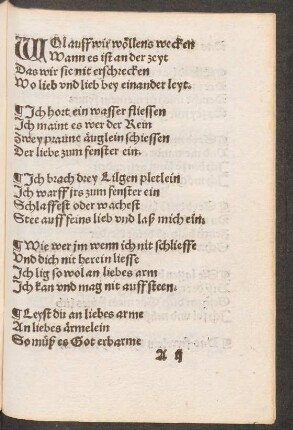 WOl auff wir wöllens wecken
Wann es ist an der zeyt
Das wir sie nit erschrecken
Wo lieb vnd lieb bey einander leyt.
¶ Ich hort ein wasser fliessen
Ich maint es wer der Rein
Zwey praune äuglein schiessen
Der liebe zum fenster ein.
¶ Ich brach drey Lilgen pletlein
Ich warff jrs zum fenster ein
Schlaffest oder wachest
Stee auff feins lieb vnd laß mich ein.
¶ Wie wer jm wenn ich nit schliesse
Vnd dich nit herein liesse
Ich lig so wol an liebes arm
Ich kan vnd mag nit auff steen.
¶ Leyst du an liebes arme
An liebes ärmelein
So müß es Got erbarme
A ij